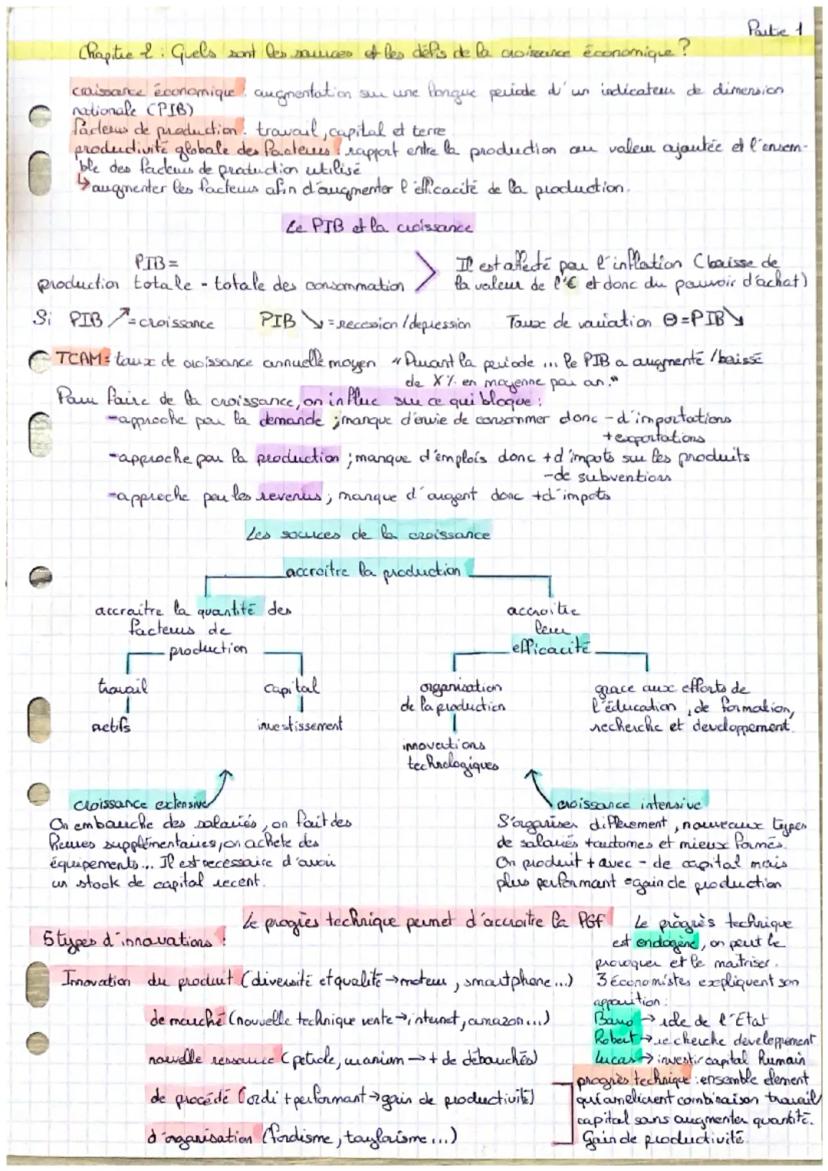 Partie 1
Chapitre 2 : Quels sont les sources et les défis de la croissance économique ?
croissance économique : augmentation sur une longue période d'un indicateur de dimension
nationale (PIB)
facteurs de production : travail, capital et terre
productivité globale des facteurs : rapport entre la production ou valeur ajoutée et l'ensem-
ble des facteurs de production utilisé
↳ augmenter les facteurs afin d'augmenter l'efficacité de la production.
Le PIB et la croissance
PIB =
production totale - totale des consommation
Il est affecté par l'inflation (baisse de
la valeur de l'€ et donc du pouvoir d'achat)
Si PIB ↗ = croissance PIB ↘ = recession / depression Taux de variation ⊖ = PIB ↘
TCAM : taux de croissance annuelle moyen "Durant la periode ... le PIB a augmenté / baissé
de X % en moyenne par an."
Pour faire de la croissance, on influe sur ce qui bloque :
- approche par la demande ; manque d'envie de consommer donc - d'importations
+ exportations
- approche par la production ; manque d'emplois donc + d'impots sur les produits
- de subventions
- approche par les revenus ; manque d'argent donc + d'impots
Les sources de la croissance
accroitre la production
accroitre la quantité des
facteurs de
production
accroitre
leur
efficacité
travail
actifs
capital
investissement
organisation
de la production
innovations
technologiques
grace aux efforts de
l'éducation, de formation,
recherche et developpement.
croissance extensive
On embauche des salariés, on fait des
heures supplémentaires, on achete des
équipements... Il est necessaire d'avoir
un stock de capital recent.
croissance intensive
S'organiser differement, nouveaux types
de salariés + automes et mieux formés.
On produit + avec - de capital mais
plus performant = gain de production
Le progrès technique permet d'accroitre la PGF
5 types d'innovations :
Innovation du produit (diversité et qualité → moteur, smartphone...)
de marché (nouvelle technique vente → internet, amazon...)
nouvelle ressource (petrole, uranium → + de débouchés)
de procédé (ordi + performant → gain de productivité)
d'organisation (fordisme, taylorisme...)
Le progrès technique
est endogène, on peut le
provoquer et le maitriser.
3 économistes expliquent son
apparition :
Barro → role de l'État
Robert → recherche développement
Lucas → investir capital humain
progrès technique : ensemble element
qui ameliorent combinaison travail/
capital sans augmenter quantité.
Gain de productivité